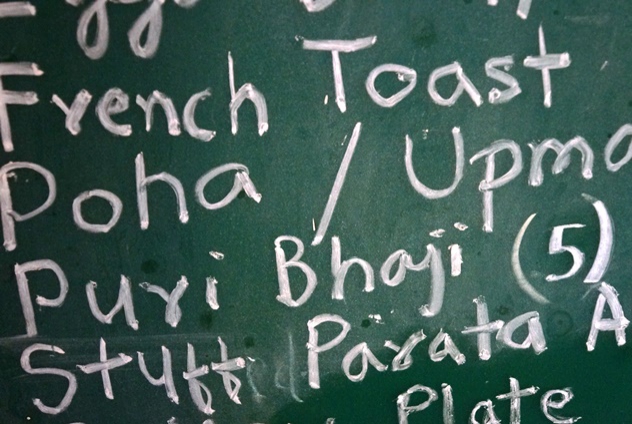 French Toast
Poha / Upma
Puri Bhaji (5)
Stuff Parata A
Plate